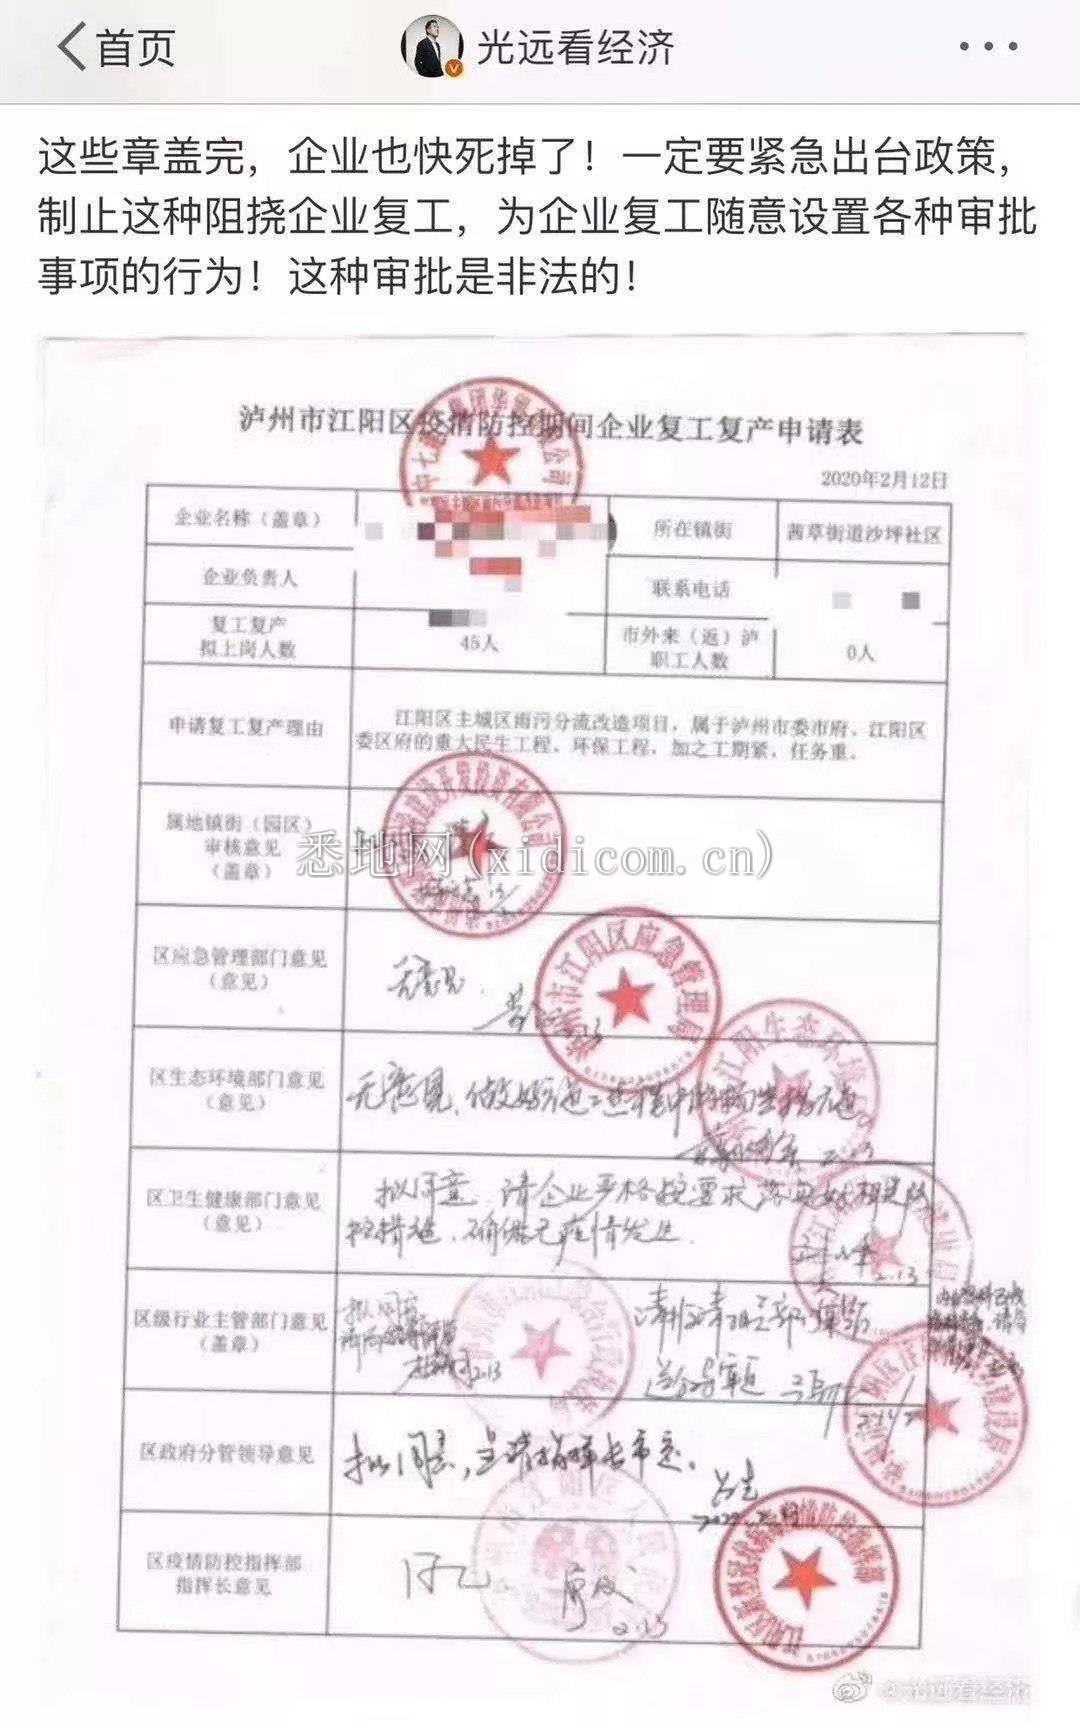 首页
光远看经济
这些章盖完，企业也快死掉了！一定要紧急出台政策，
制止这种阻挠企业复工，为企业复工随意设置各种审批
事项的行为！这种审批是非法的！
泸州市江阳区疫情防控期间企业复工复产申请表
2020年2月12日
企业名称（盖章）
所在镇街
茜草街道沙坪社区
企业负责人
联系电话
复工复产
拟上岗人数
45人
市外来（返）泸
职工人数
0人
申请复工复产理由
江阳区主城区雨污分流改造项目，属于泸州市委市府、江阳区
委区府的重大民生工程、环保工程，加之工期紧，任务重。
属地镇街（园区）
审核意见
（盖章）
悉地网(xidicom.cn)
区应急管理部门意见
（意见）
无意见
泸州市江阳区应急管理局
区生态环境部门意见
（意见）
无意见、做好施工过程中
江阳生态环境
2.13
区卫生健康部门意见
（意见）
拟同意，请企业严格按要求落实
控措施，确保无疫情发生
2.13
区级行业主管部门意见
（盖章）
拟同意
2.13
区政府分管领导意见
拟同意，呈请指挥长审定。
区疫情防控指挥部
指挥长意见
同意
2.13
@光远看经济